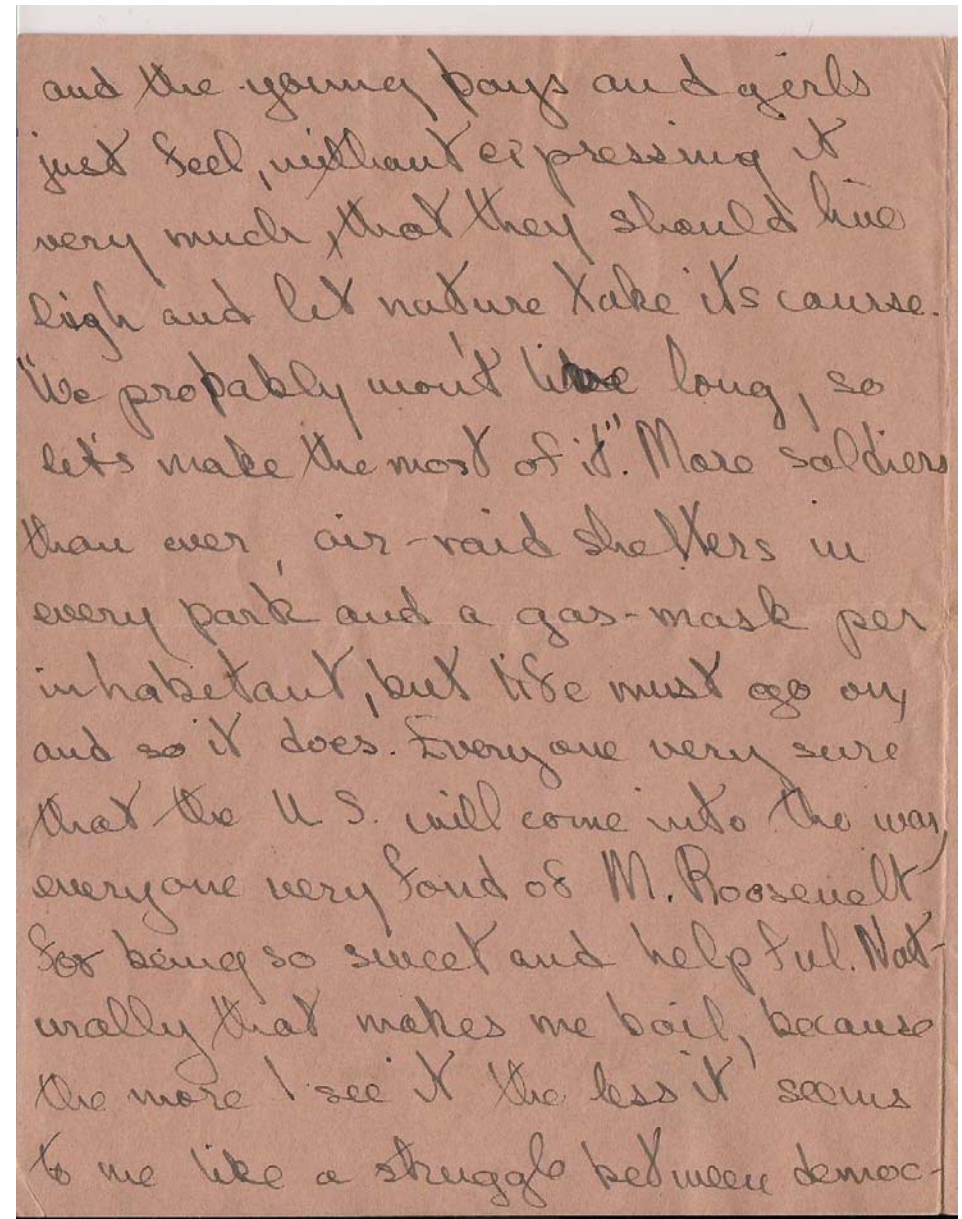 and the young boys and girls
just feel, without expressing it
very much, that they should live
high and let nature take its course.
"We probably won't live long, so
let's make the most of it". More soldiers
than ever, air-raid shelters in
every park and a gas-mask per
inhabitant, but life must go on,
and so it does. Everyone very sure
that the U S. will come into the war,
everyone very fond of M. Roosevelt
for being so sweet and helpful. Nat-
urally that makes me boil, because
the more I see it the less it seems
to me like a struggle between democ-